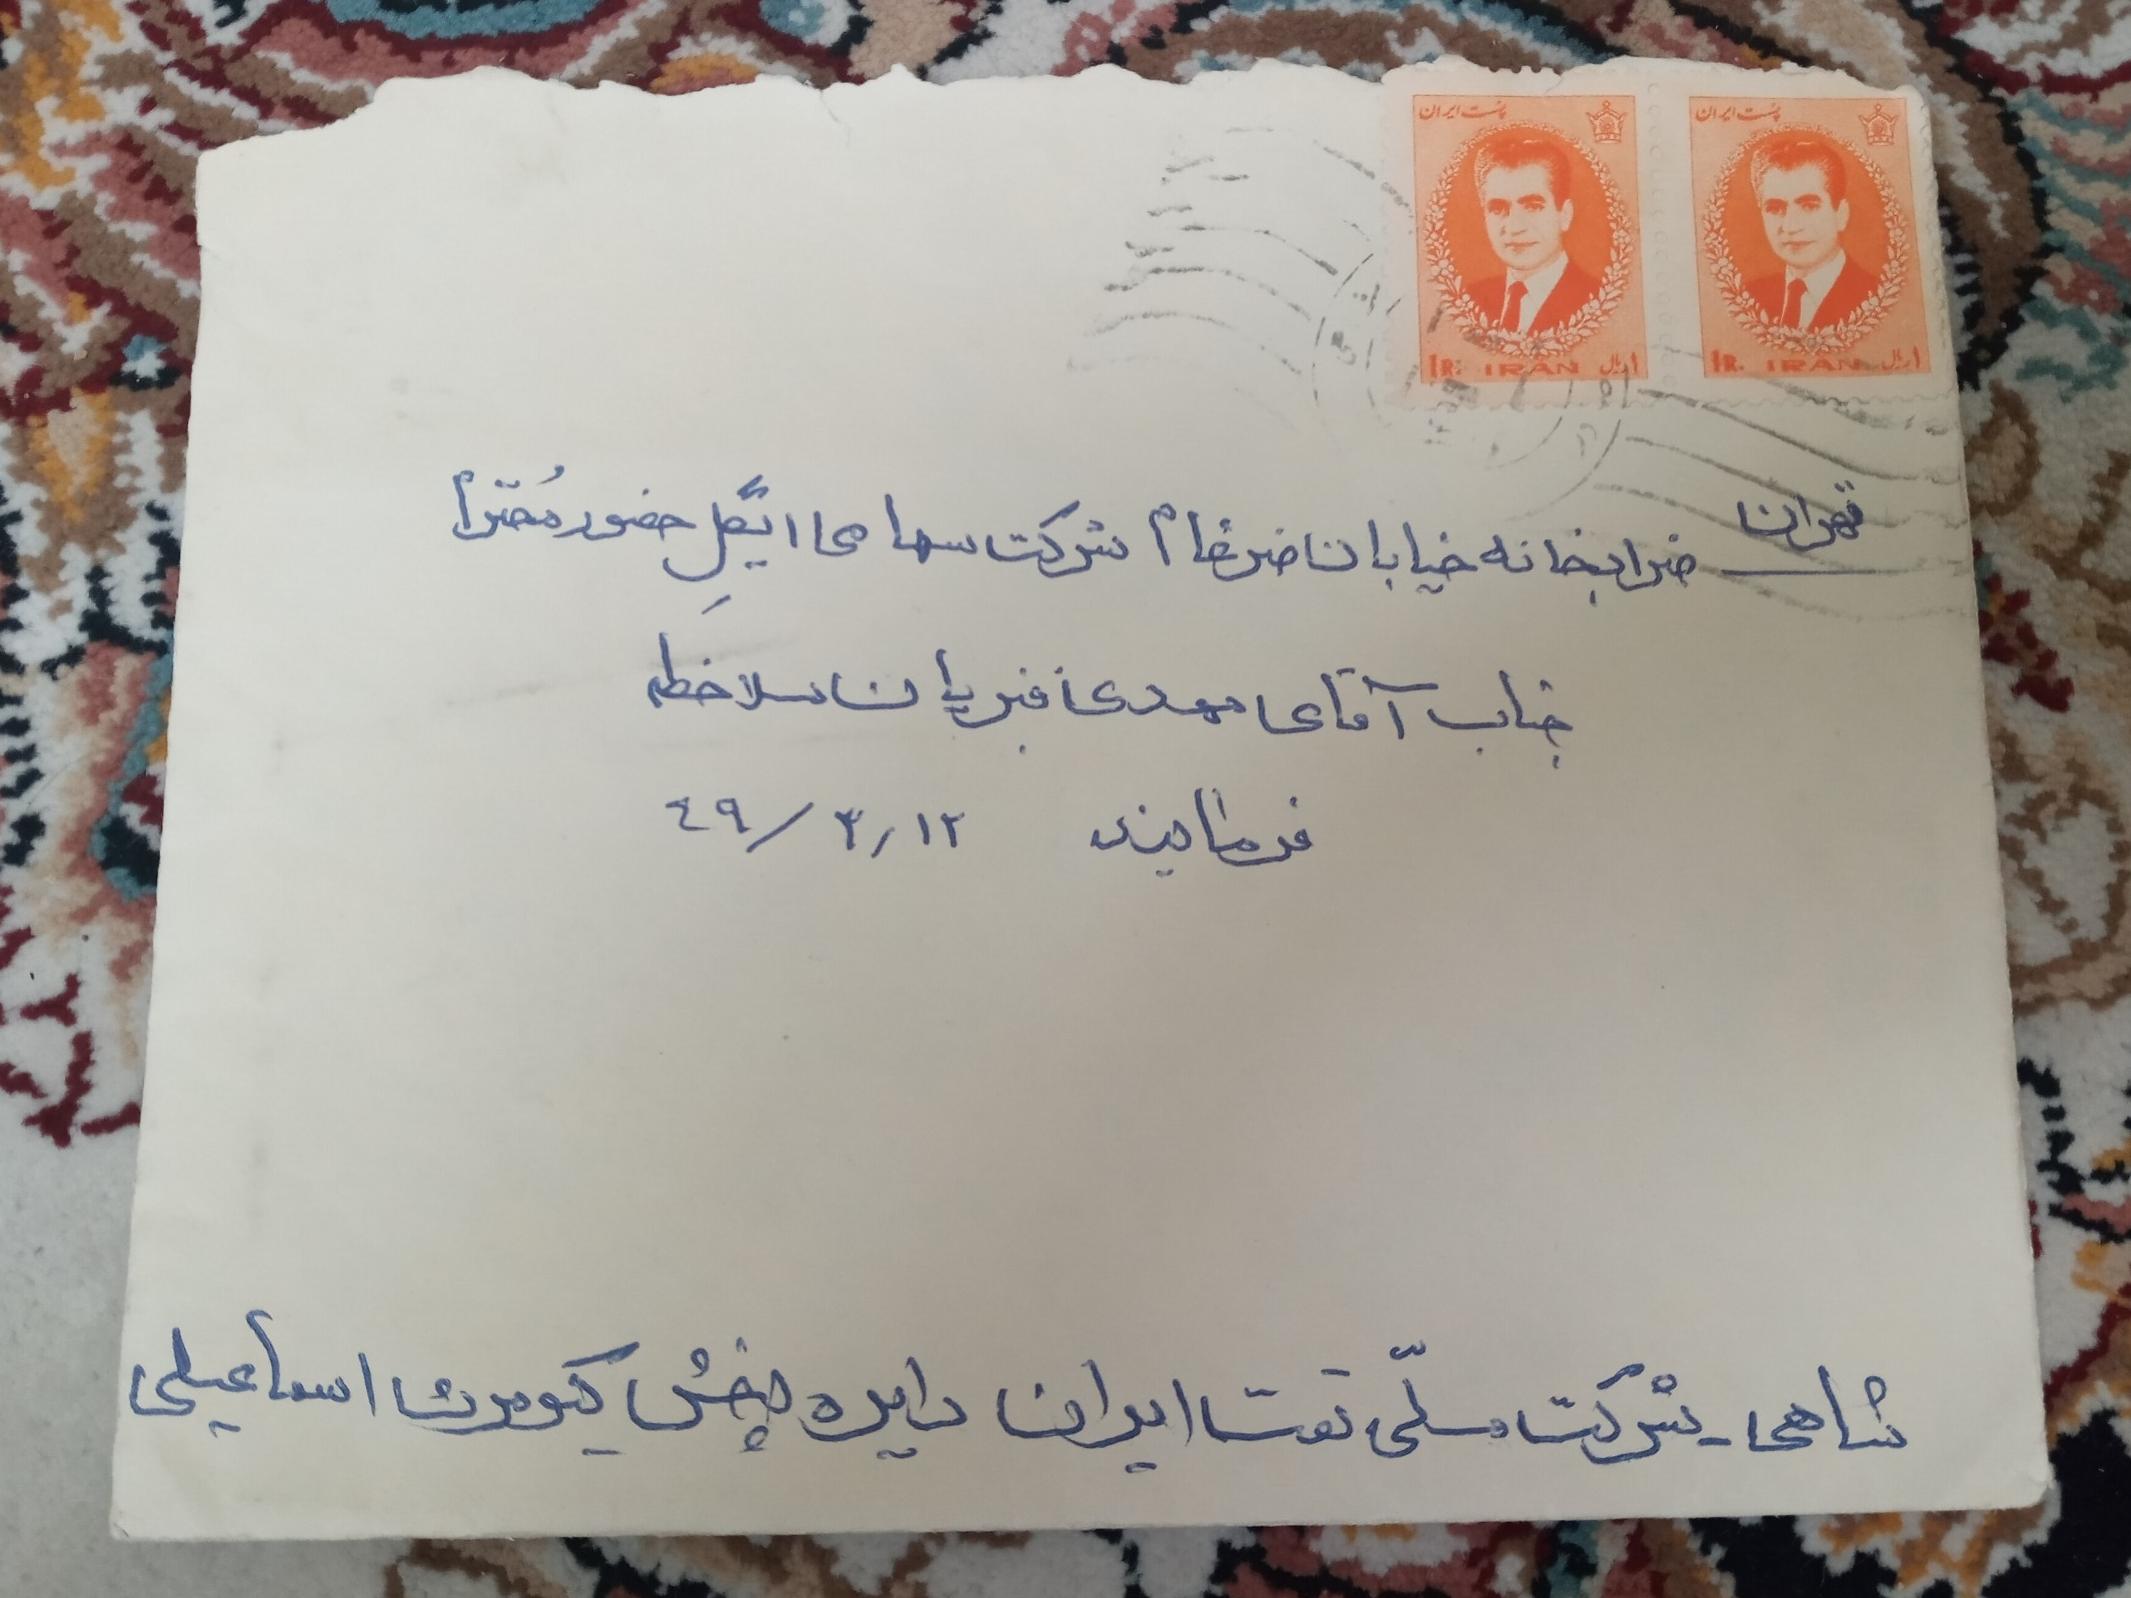 پست ایران
پست ایران
1R. IRAN ۱ ریال
1R. IRAN ۱ ریال
تهران
ضرابخانه خیابان ضرغام شرکت سهامی ایگل حضور مُحترم
جناب آقای مهدی قنبریان ملاحظه
فرمایند ۴۹/۳/۱۲
شاهی - شرکت ملّی نفت ایران دایره پخش کیومرث اسماعیلی